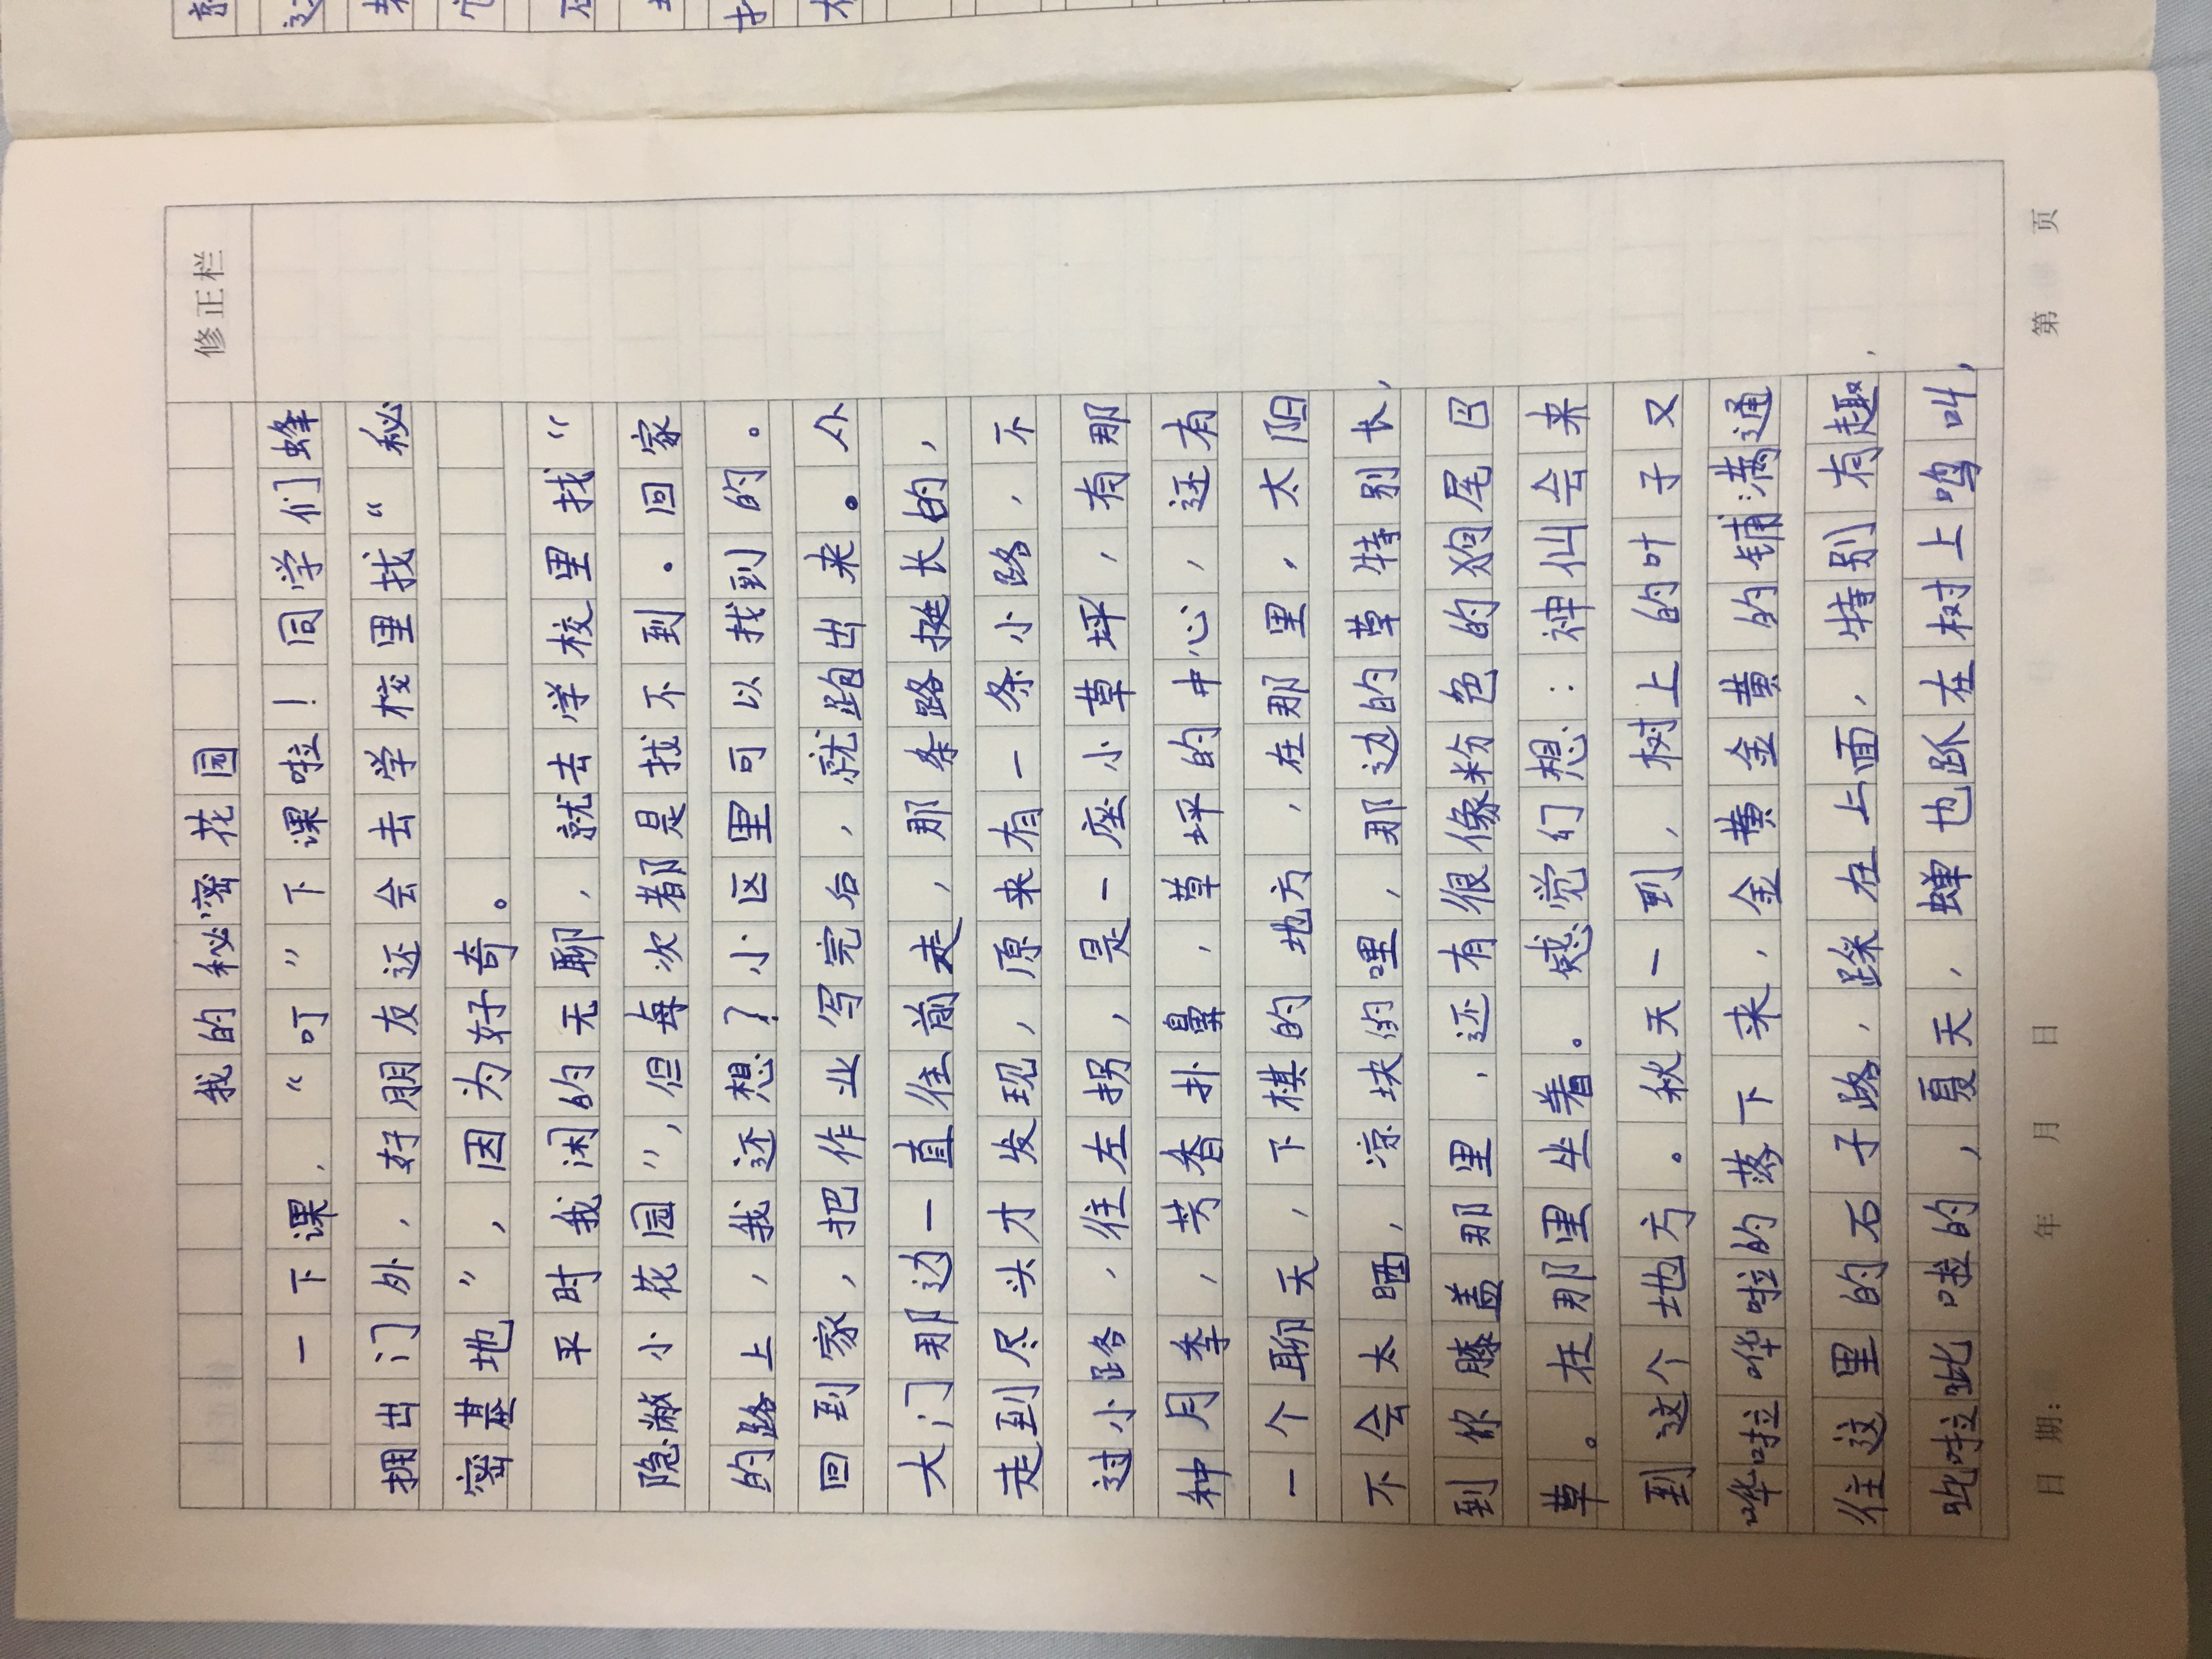 修正栏
我的秘密花园
一下课，“叮”下课啦！同学们蜂
拥出门外，好朋友还会去学校里找“秘
密基地”，因为好奇。
平时我闲的无聊，就去学校里找“
隐蔽小花园”，但每次都是找不到。回家
的路上，我还想？小区里可以找到的。
回到家，把作业写完后，就跑出来。从
大门那边一直往前走，那条路挺长的，
走到尽头才发现，原来有一条小路，不
过小路，往左拐，是一座小草坪，有那
种月季，芳香扑鼻，草坪的中心，还有
一个聊天，下棋的地方，在那里，太阳
不会太晒，凉块的哩，那边的草特别长，
到你膝盖那里，还有很像粉色的狗尾巴
草。在那里坐着。感觉幻想：神仙会来
到这个地方。秋天一到，树上的叶子又
哗啦哗啦的落下来，金黄金黄的铺满通
往这里的石子路，踩在上面，特别有趣，
吡啦吡啦的，夏天，蝉也趴在树上鸣叫，
日期： 年 月 日 第 页